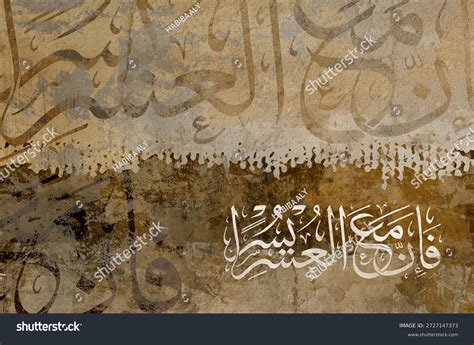 إن مع العسر يسرا
فَإِنَّ مَعَ الْعُسْرِ يُسْرًا
shutterstock
HABIBA ALY
IMAGE ID: 2727147373
www.shutterstock.com